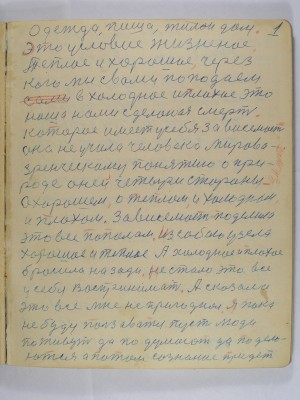 Одежда, пища, жилой дом. 1
Это условие жизненое.
Теплое и хорошее через
кого мы с вами попадаем
в холодное и плохое это
наша нами сделаная смерть.
Которая имеет у себя Зависимость
она не учила человека мирово-
зренческому понятию о при-
роде о ней четыри стораны
о хорошем, о теплом и холодном
и плохом. Зависимость поделила
это все пополам, из собою узела
хорошое и теплое. А холодное и плохое
бросила назади, не стало это все
у себя востренимать. А сказала
это все мне не пригодная. Я пока
не буду ползавати пуст люди
поживут да подумают да подела-
ются а потом сознание придет